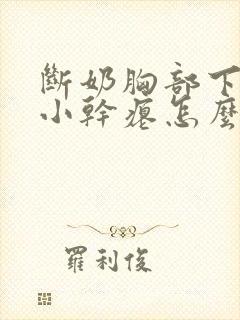 斷奶胸部下
小幹癟怎麼
羅利俊